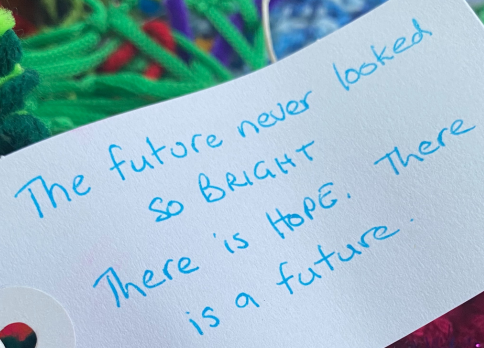 The future never looked
so BRIGHT
There is HOPE. There
is a future.